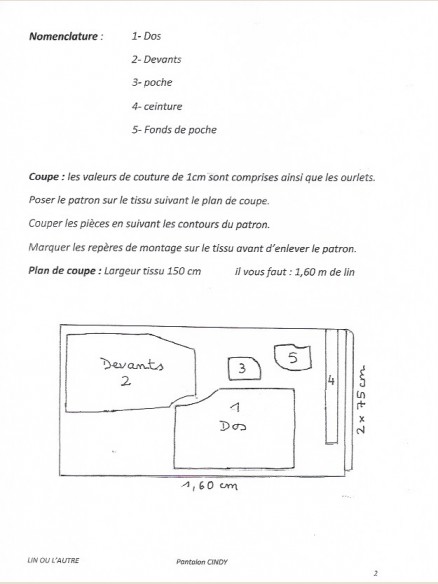 Nomenclature : 1- Dos
2- Devants
3- poche
4- ceinture
5- Fonds de poche
Coupe : les valeurs de couture de 1cm sont comprises ainsi que les ourlets.
Poser le patron sur le tissu suivant le plan de coupe.
Couper les pièces en suivant les contours du patron.
Marquer les repères de montage sur le tissu avant d'enlever le patron.
Plan de coupe : Largeur tissu 150 cm il vous faut : 1,60 m de lin
Devants
2
3
5
4
1
Dos
2 x 75 cm
1,60 cm
LIN OU L'AUTRE
Pantalon CINDY
2